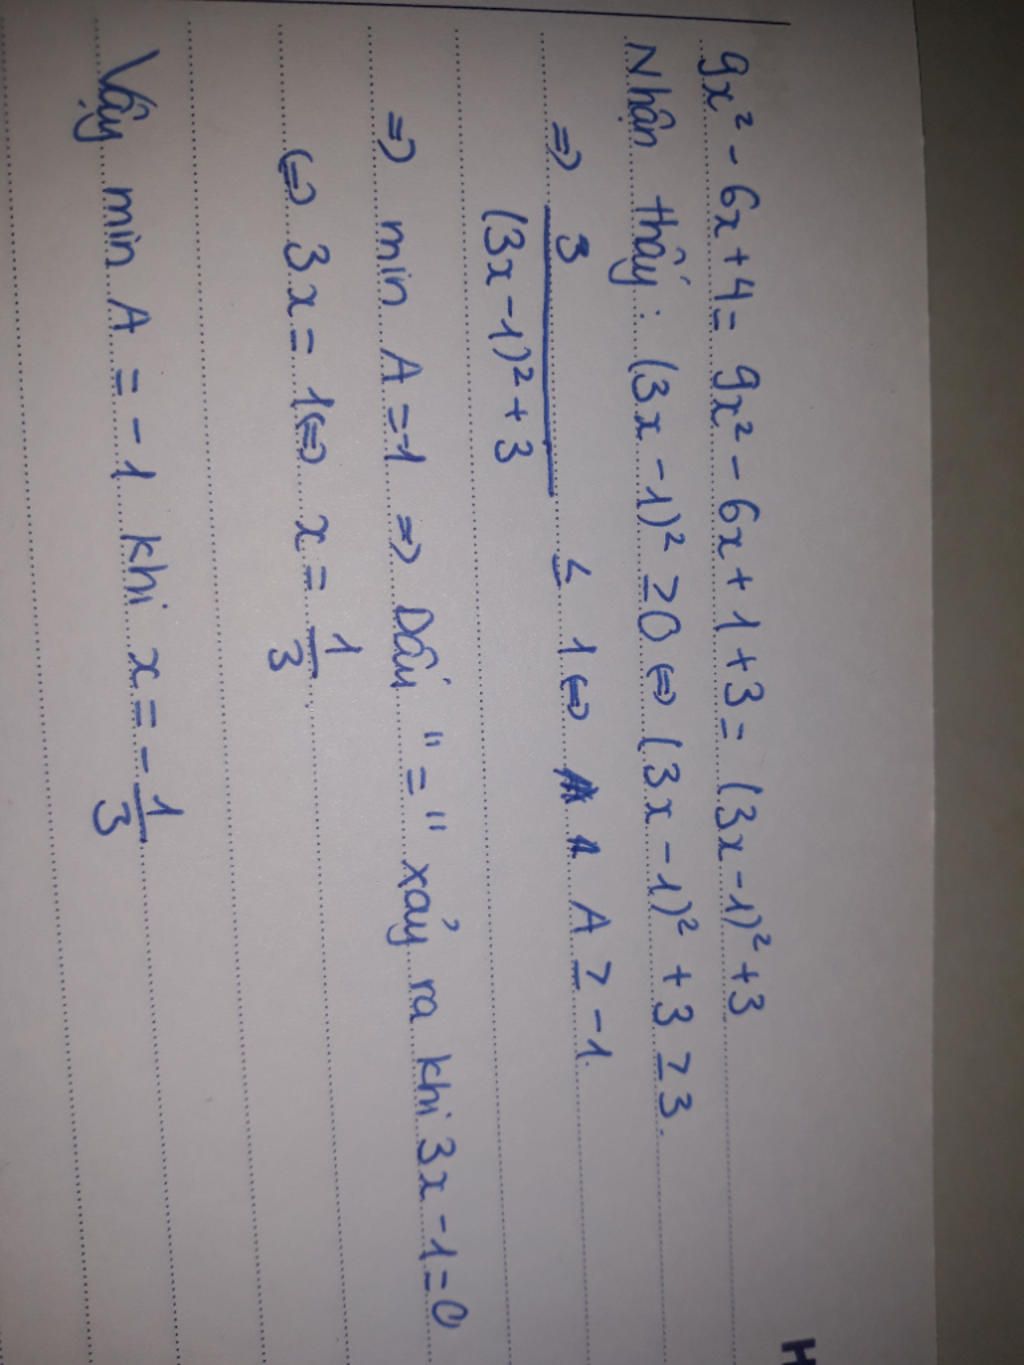 9x² - 6x + 4 = 9x² - 6x + 1 + 3 = (3x - 1)² + 3
Nhận thấy: (3x - 1)² ≥ 0 ⇔ (3x - 1)² + 3 ≥ 3.
⇒ 3/((3x - 1)² + 3) ≤ 1 ⇔ A ≥ -1.
⇒ min A = -1 ⇒ Dấu "=" xảy ra khi 3x - 1 = 0
⇔ 3x = 1 ⇔ x = 1/3.
Vậy min A = -1 khi x = -1/3
H